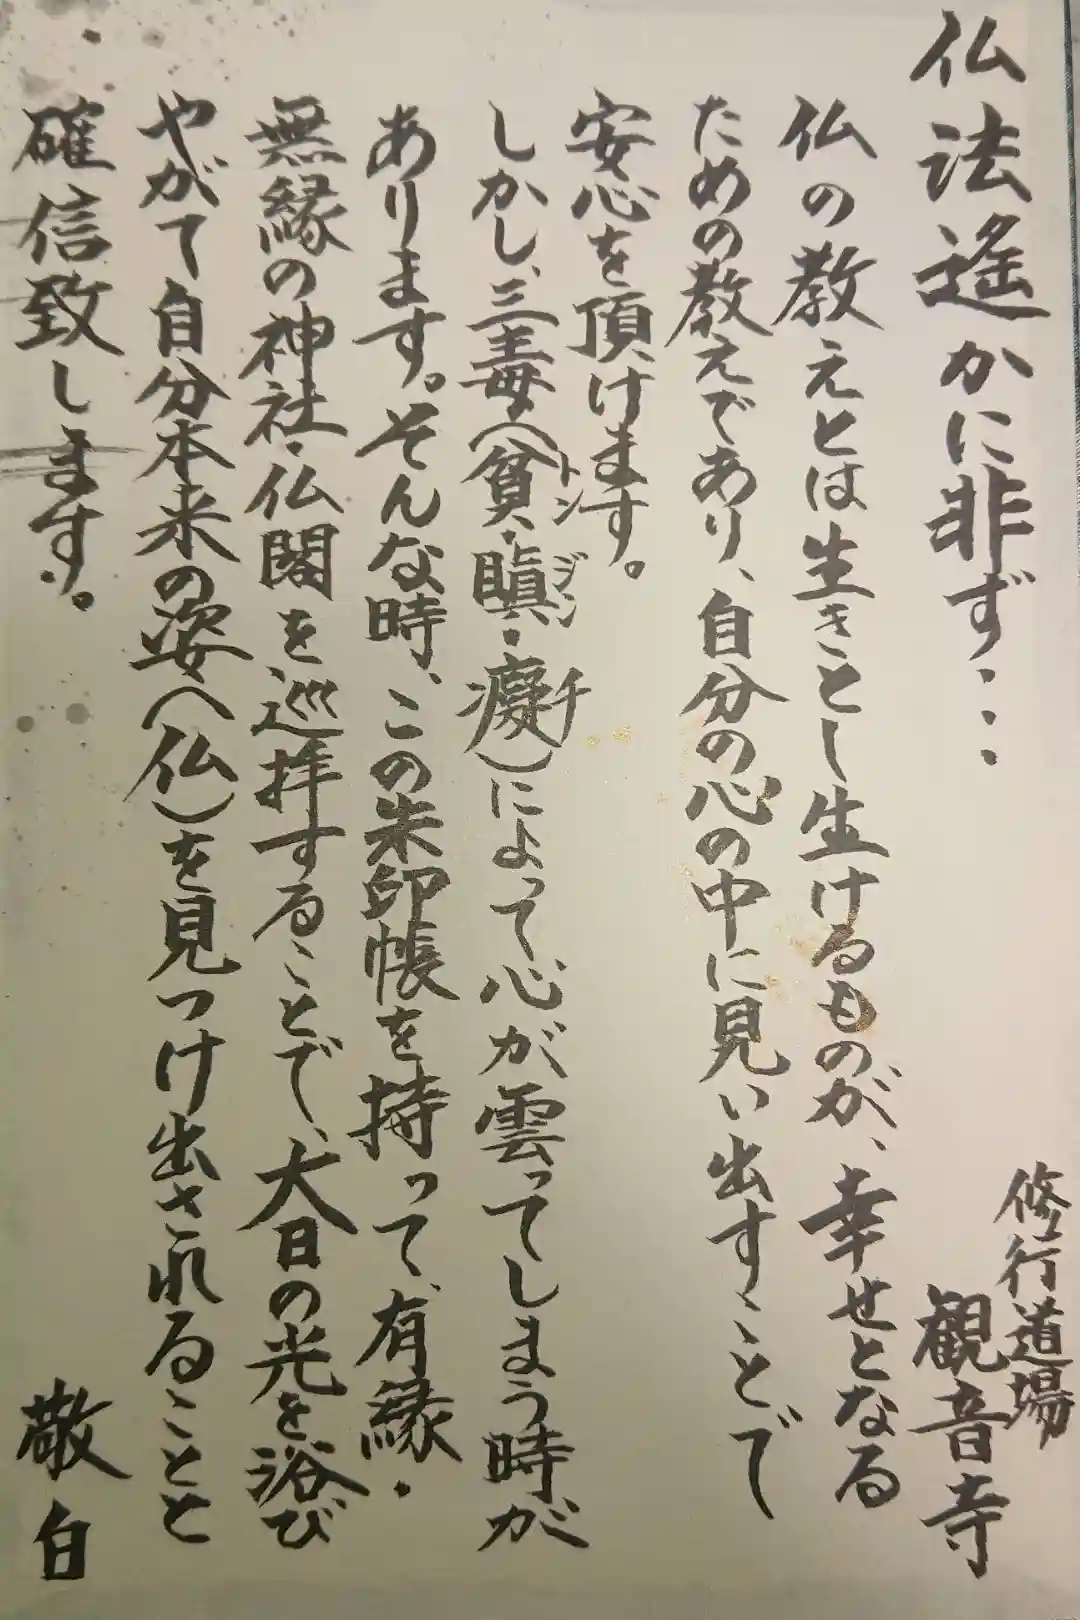 仏法遙かに非ず・・・
修行道場
観音寺
仏の教えとは生きとし生けるものが、幸せとなる
ための教えであり、自分の心の中に見い出すことで
安心を頂けます。
しかし、三毒(貧・瞋・癡)によって心が雲ってしまう時が
トン ジン チ
あります。そんな時、この朱印帳を持って、有縁・
無縁の神社・仏閣を巡拝することで、大日の光を浴び
やがて自分本来の姿(仏)を見つけ出されることと
確信致します。
敬白